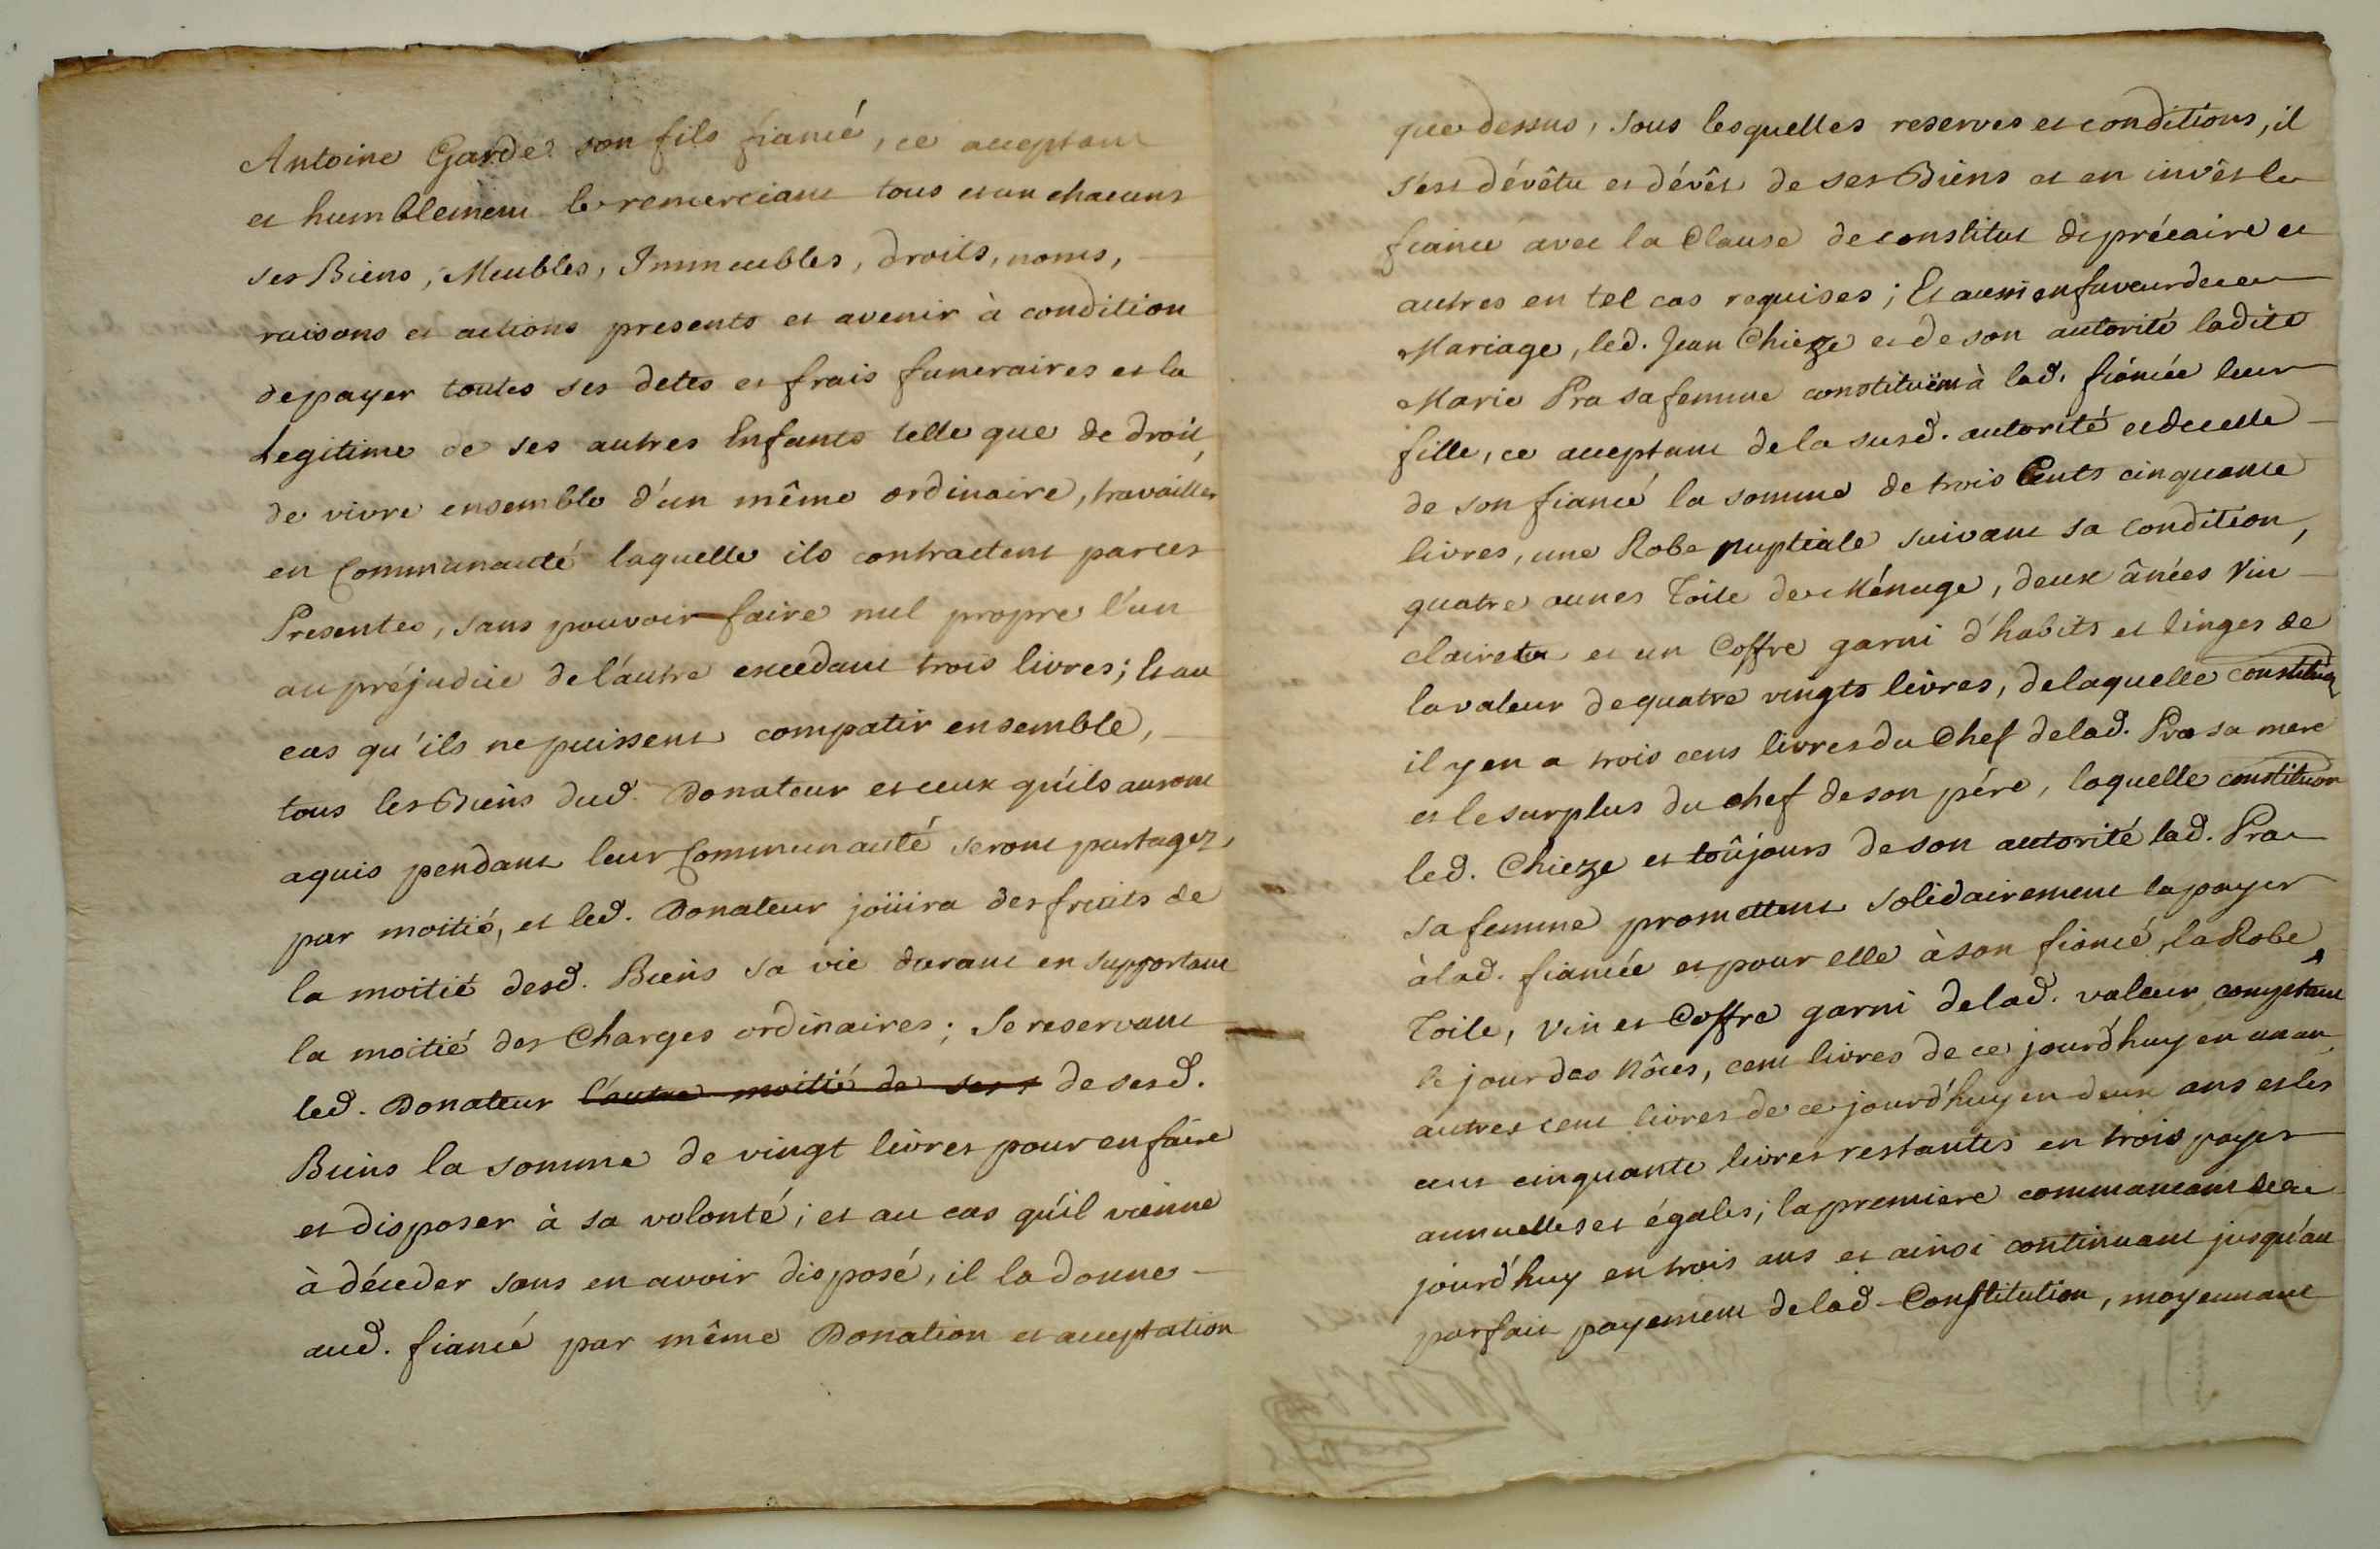 Antoine Garde son fils fiancé, ce aceptant
et humblement le remerciant tous et un chacuns
ses Biens, Meubles, Immeubles, droits, noms,
raisons et actions presents et avenir à condition
de payer toutes ses detes et frais funeraires et la
Legitime de ses autres Enfants telle que de droit,
de vivre ensemble d'un même ordinaire, travailler
en Communauté laquelle ils contractent par ces
Presentes, sans pouvoir faire nul propre l'un
au préjudice de l'autre excedant trois livres; Et au
cas qu'ils ne puissent compatir ensemble,
tous les Biens dud. Donateur et ceux qu'ils auront
aquis pendant leur Communauté seront partagez
par moitié, et led. Donateur joüira des fruits de
la moitié desd. Biens sa vie durant en supportant
la moitié des Charges ordinaires; Se reservant
led. Donateur l'autre moitié de ses de sesd.
Biens la somme de vingt livres pour en faire
et disposer à sa volonté; et au cas qu'il vienne
à déceder sans en avoir disposé, il la donne
aud. fiancé par même Donation et acceptation
que dessus, sous lesquelles reserves et conditions, il
s'est dévêtu et dévêt de ses Biens et en invêt le
fiancé avec la Clause de constitut de précaire et
autres en tel cas requises; Et aussi en faveur de ce
Mariage, led. Jean Chieze et de son autorité ladite
Marie Pra sa femme constituënt à lad. fiancée leur
fille, ce acceptant de la susd. autorité et de celle
de son fiancé la somme de trois Cents cinquante
livres, une Robe nuptiale suivant sa condition,
quatre aunes Toile de Ménage, deux ânées Vin
clairet et un Coffre garni d'habits et linges de
la valeur de quatre vingts livres, de laquelle constituon
il y en a trois cens livres du Chef de lad. Pra sa mere
et le surplus du chef de son pére, laquelle constituon
led. Chieze et toûjours de son autorité lad. Pra
sa femme promettent solidairement la payer
à lad. fiancée et pour elle à son fiancé, la Robe,
Toile, Vin et Coffre garni de lad. valeur comptant
le jour des Nôces, cent livres de ce jourd'huy en un an,
autres cent livres de ce jourd'huy en deux ans et les
cent cinquante livres restantes en trois payes
annuelles et égales; la premiere commancant de ce
jourd'huy en trois ans et ainsi continuant jusqu'au
parfait payement de lad. Constitution, moyennant